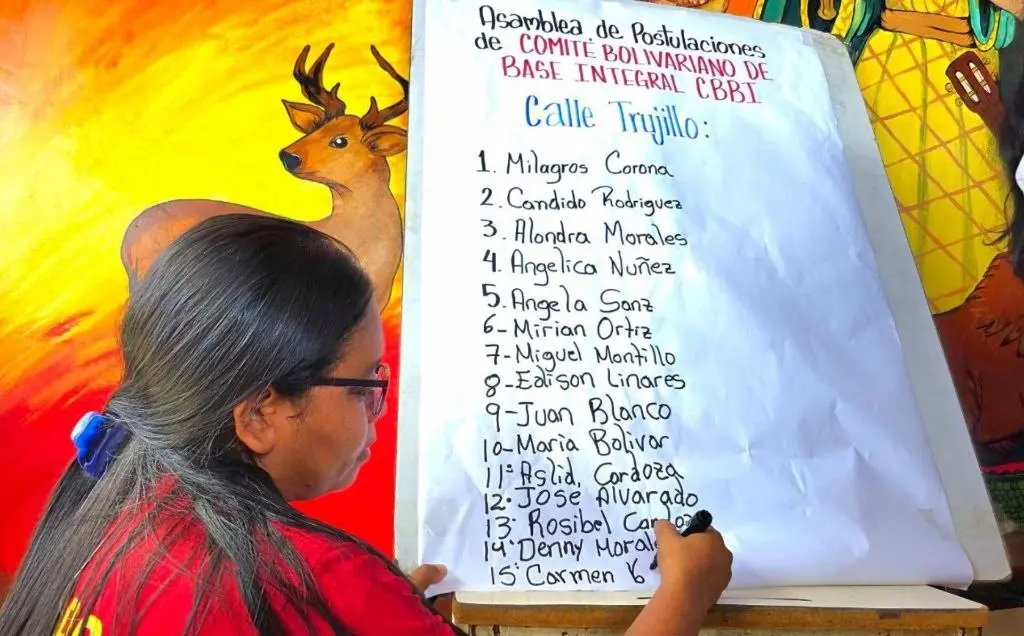 Asamblea de Postulaciones
de COMITÉ BOLIVARIANO DE
BASE INTEGRAL CBBI
Calle Trujillo:
1. Milagros Corona
2. Candido Rodriguez
3. Alondra Morales
4. Angelica Nuñez
5. Angela Sanz
6- Mirian Ortiz
7- Miguel Montillo
8- Edison Linares
9- Juan Blanco
10- Maria Bolivar
11: Aslid, Cordoza
12: JOSE Alvarado
13: Rosibel
14: Denny
15: Carmen